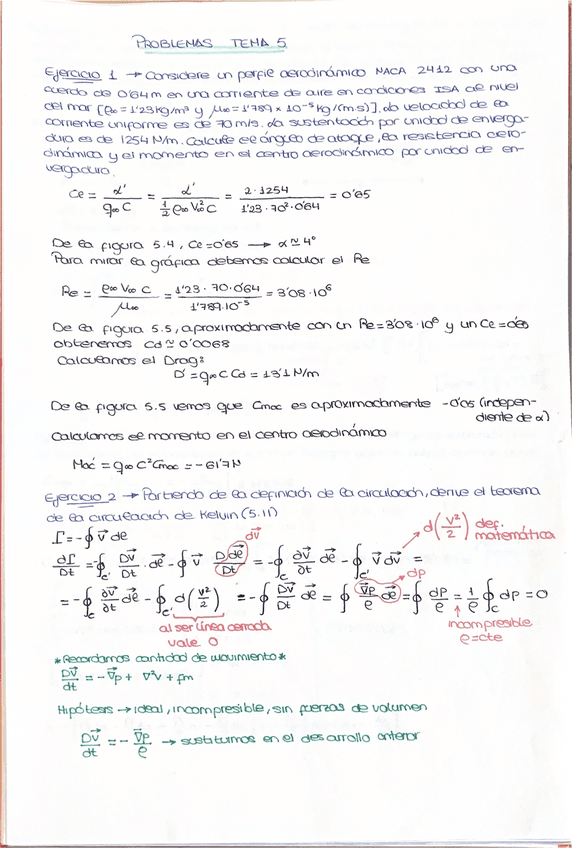 PROBLEMAS TEMA 5
Ejercicio 1 → Considere un perfil aerodinámico NACA 2412 con una
cuerda de 0'64 m en una corriente de aire en condiciones ISA al nivel
del mar [ρ∞ = 1'23 kg/m³ y μ∞ = 1'789 × 10⁻⁵ kg/(m·s)]. La velocidad de la
corriente uniforme es de 70 m/s. La sustentación por unidad de enverga-
dura es de 1254 N/m. Calcule el ángulo de ataque, la resistencia aero-
dinámica y el momento en el centro aerodinámico por unidad de en-
vergadura.
Cl = L'/(q∞ C) = L'/(½ ρ∞ V∞² C) = 2·1254/(1'23·70²·0'64) = 0'65
De la figura 5.4, Cl = 0'65 → α ≃ 4°
Para mirar la gráfica debemos calcular el Re
Re = ρ∞ V∞ C/μ∞ = 1'23·70·0'64/1'789·10⁻⁵ = 3'08·10⁶
De la figura 5.5, aproximadamente con un Re = 3'08·10⁶ y un Cl = 0'65
obtenemos Cd ≃ 0'0068
Calculamos el Drag:
D' = q∞ C Cd = 13'1 N/m
De la figura 5.5 vemos que Cmac es aproximadamente -0'05 (indepen-
diente de α)
Calculamos el momento en el centro aerodinámico
Mac' = q∞ C² Cmac = -61'7 N
Ejercicio 2 → Partiendo de la definición de la circulación, derive el teorema
de la circulación de Kelvin (5.11)
Γ = -∮ V⃗ dl dv⃗ d(V²/2) def. matemática
dΓ/Dt = -∮c' DV⃗/Dt · dl⃗ - ∮ V⃗ D dl⃗/Dt = -∮c ∂V⃗/∂t dl⃗ - ∮c' V⃗ dv⃗ =
= -∮c ∂V⃗/∂t dl⃗ - ∮c' d(V²/2) = -∮ DV⃗/Dt dl⃗ = ∮ ∇⃗p/ρ dl⃗ = ∮ dp/ρ = 1/ρ ∮c dp = 0
dp
al ser línea cerrada vale 0
incompresible ρ = cte
*Recordamos cantidad de movimiento*
DV⃗/dt = -∇⃗p + ∇²v + fm
Hipótesis → ideal, incompresible, sin fuerzas de volumen
DV⃗/dt = -∇⃗p/ρ → sustituimos en el desarrollo anterior